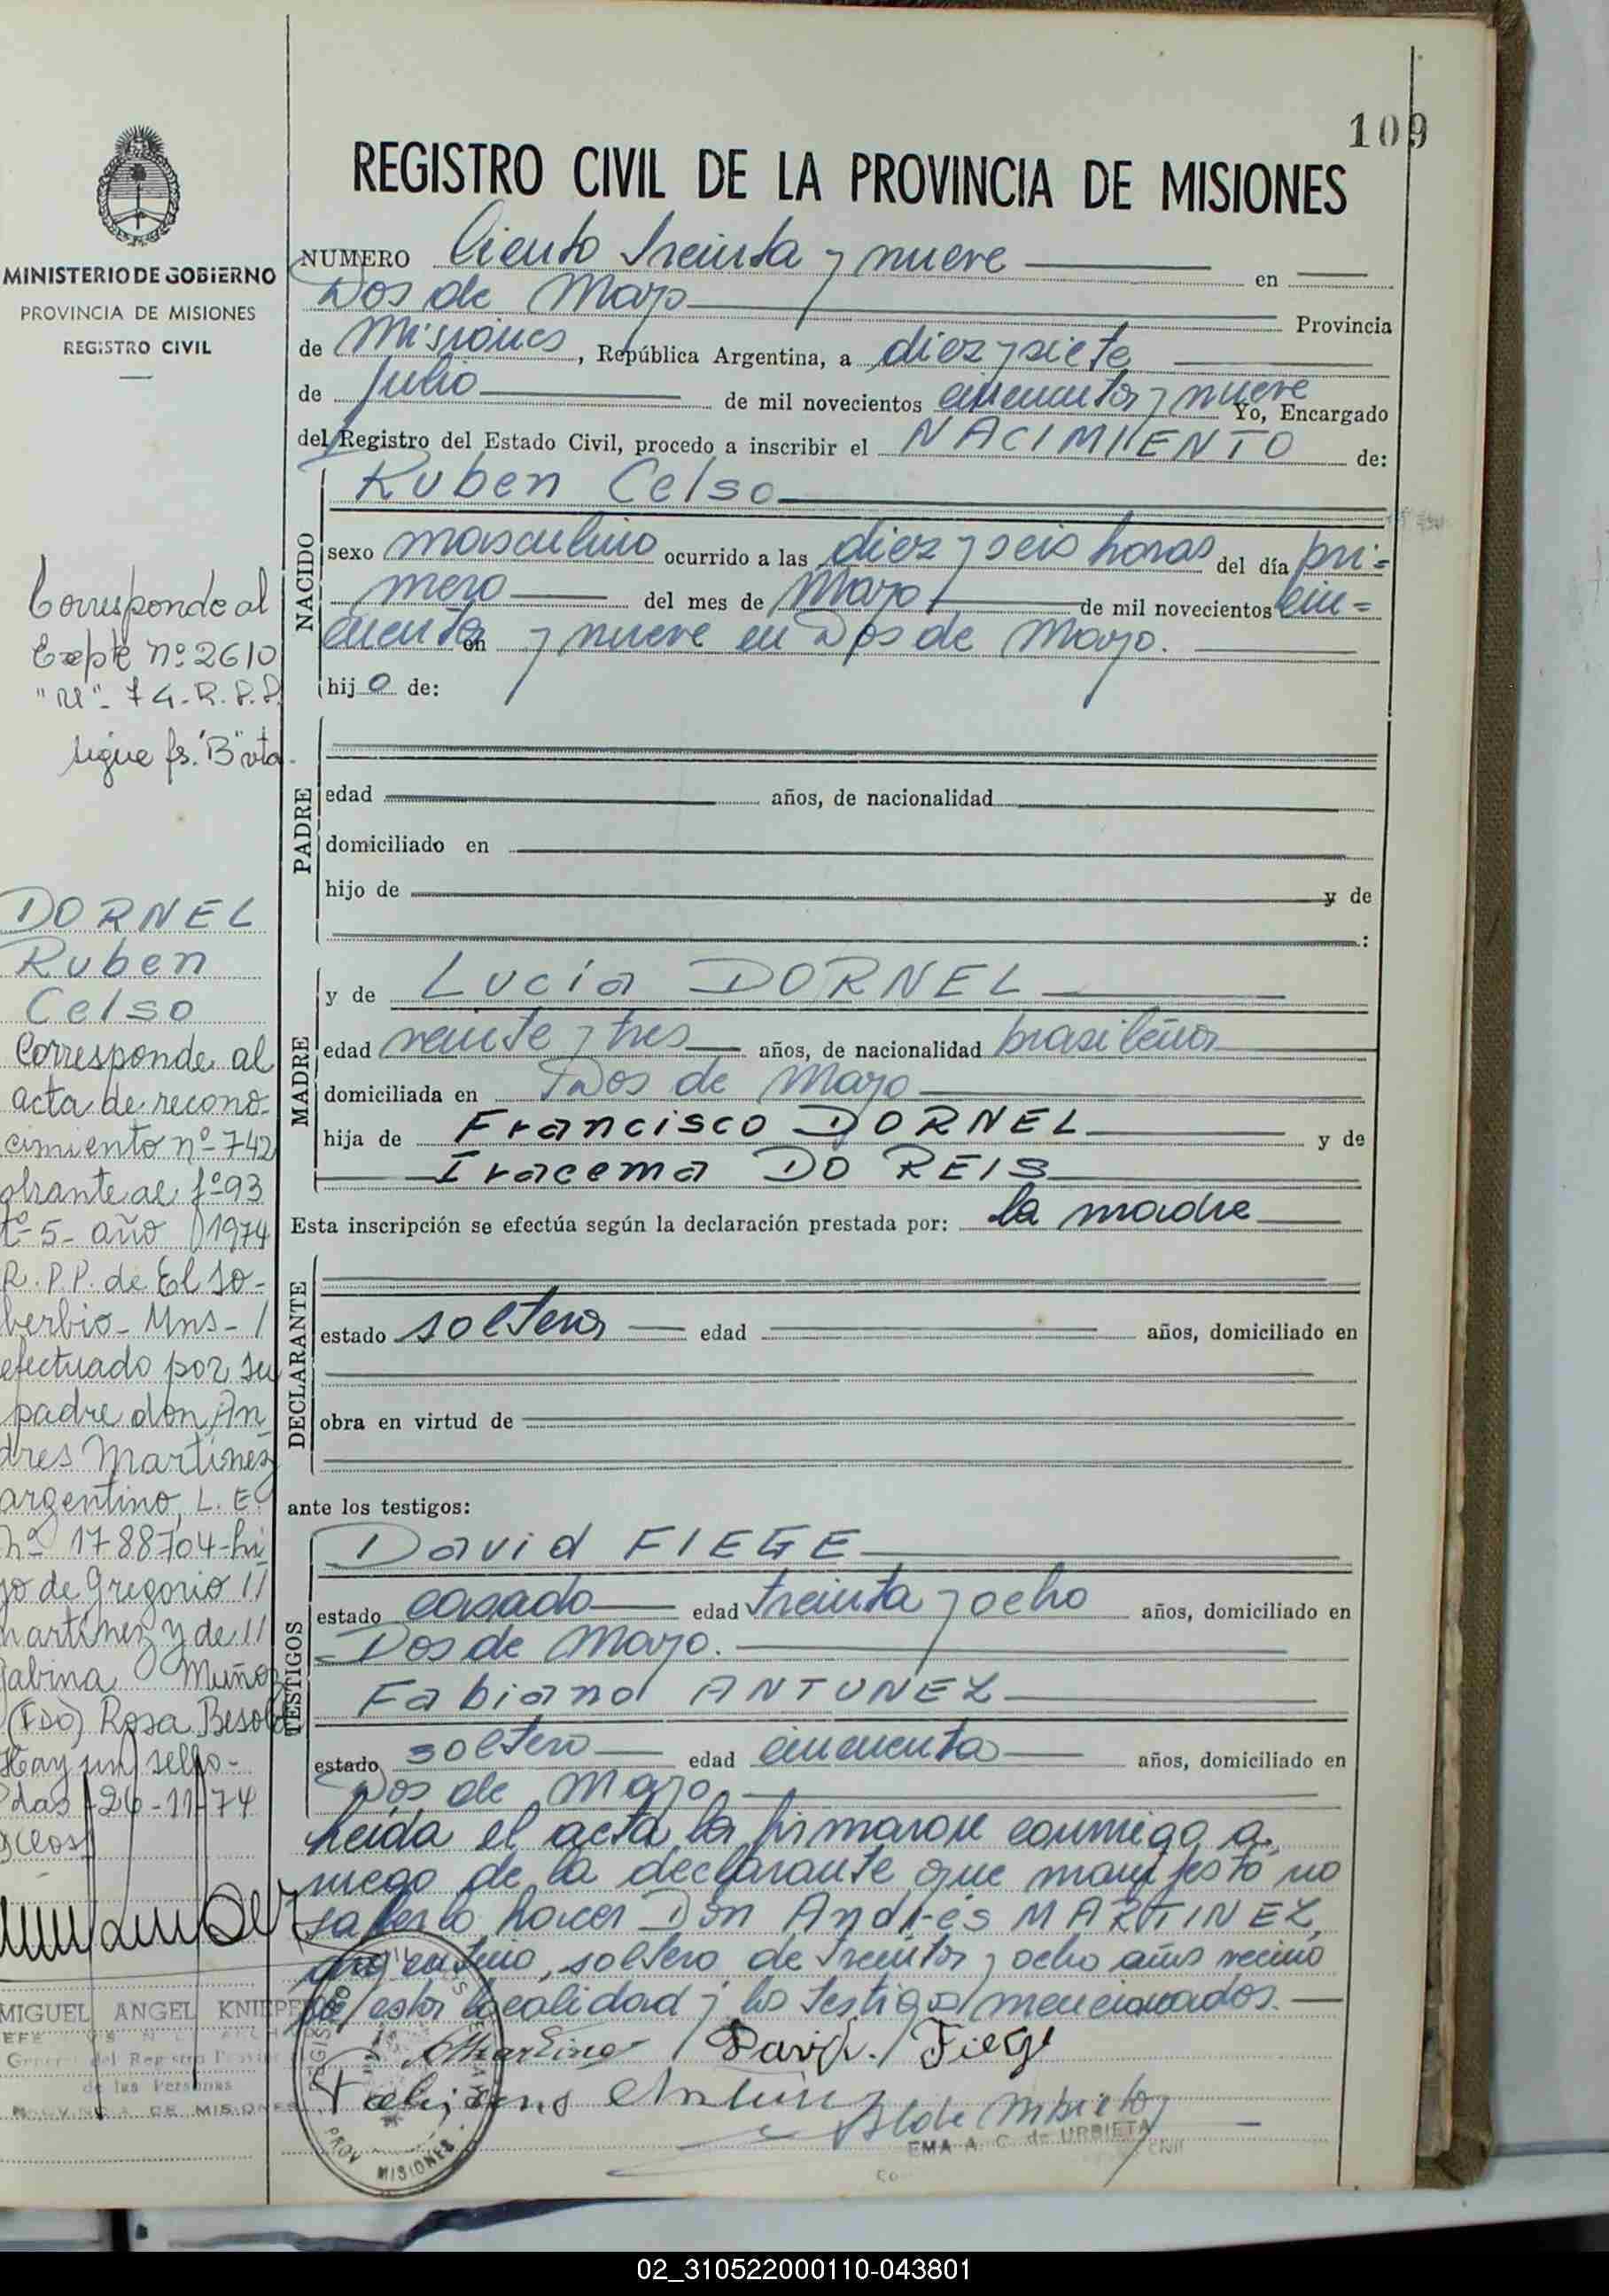 109
REGISTRO CIVIL DE LA PROVINCIA DE MISIONES
MINISTERIO DE GOBIERNO
PROVINCIA DE MISIONES
REGISTRO CIVIL
NUMERO Ciento treinta y nueve en
Dos de Mayo Provincia
de Misiones, República Argentina, a diez y siete
de Julio de mil novecientos cincuenta y nueve Yo, Encargado
del Registro del Estado Civil, procedo a inscribir el NACIMIENTO de:
NACIDO
Ruben Celso
sexo masculino ocurrido a las diez y seis horas del día pri=
mero del mes de Mayo de mil novecientos cin=
cuenta en y nueve en Dos de Mayo.
hijo de:
PADRE
edad años, de nacionalidad
domiciliado en
hijo de y de
:
MADRE
y de Lucía DORNEL
edad veinte y tres años, de nacionalidad brasileña
domiciliada en Dos de Mayo
hija de Francisco DORNEL y de
Iracema DO REIS
Esta inscripción se efectúa según la declaración prestada por: la madre
DECLARANTE
estado soltera edad años, domiciliado en
obra en virtud de
ante los testigos:
TESTIGOS
David FIEGE
estado casado edad treinta y ocho años, domiciliado en
Dos de Mayo.
Fabiano ANTUNEZ
estado soltero edad cincuenta años, domiciliado en
Dos de Mayo
Leida el acta la firmaron conmigo a
ruego de la declarante que manifestó no
saberlo hacer Don Andrés MARTINEZ,
argentino, soltero de treinta y ocho años vecino
de esta localidad y los testigos mencionados.
AMartinez David. Fiege
Fabiano Antunez
EMA A. C. de URBIETA
PROV. MISIONES
Corresponde al
Expte nº 2610
"M"- 74-R.P.P.
sigue fs. "B" vta.
DORNEL
Ruben
Celso
Corresponde al
acta de recono-
cimiento nº 742
obrante al fº 93
tº 5- año 1974
R.P.P. de El So-
berbio- Mns- /
efectuado por su
padre don An
dres Martinez
argentino, L.E.
nº 1788704-hi
jo de Gregorio //
Martinez y de //
Sabina Muñoz
(FDO) Rosa Besold
Hay un sello-
Pdas 26-11-74
MIGUEL ANGEL KNIEPE
General del Registro Provin
de las Personas
PROVINCIA DE MISIONES
02_310522000110-043801